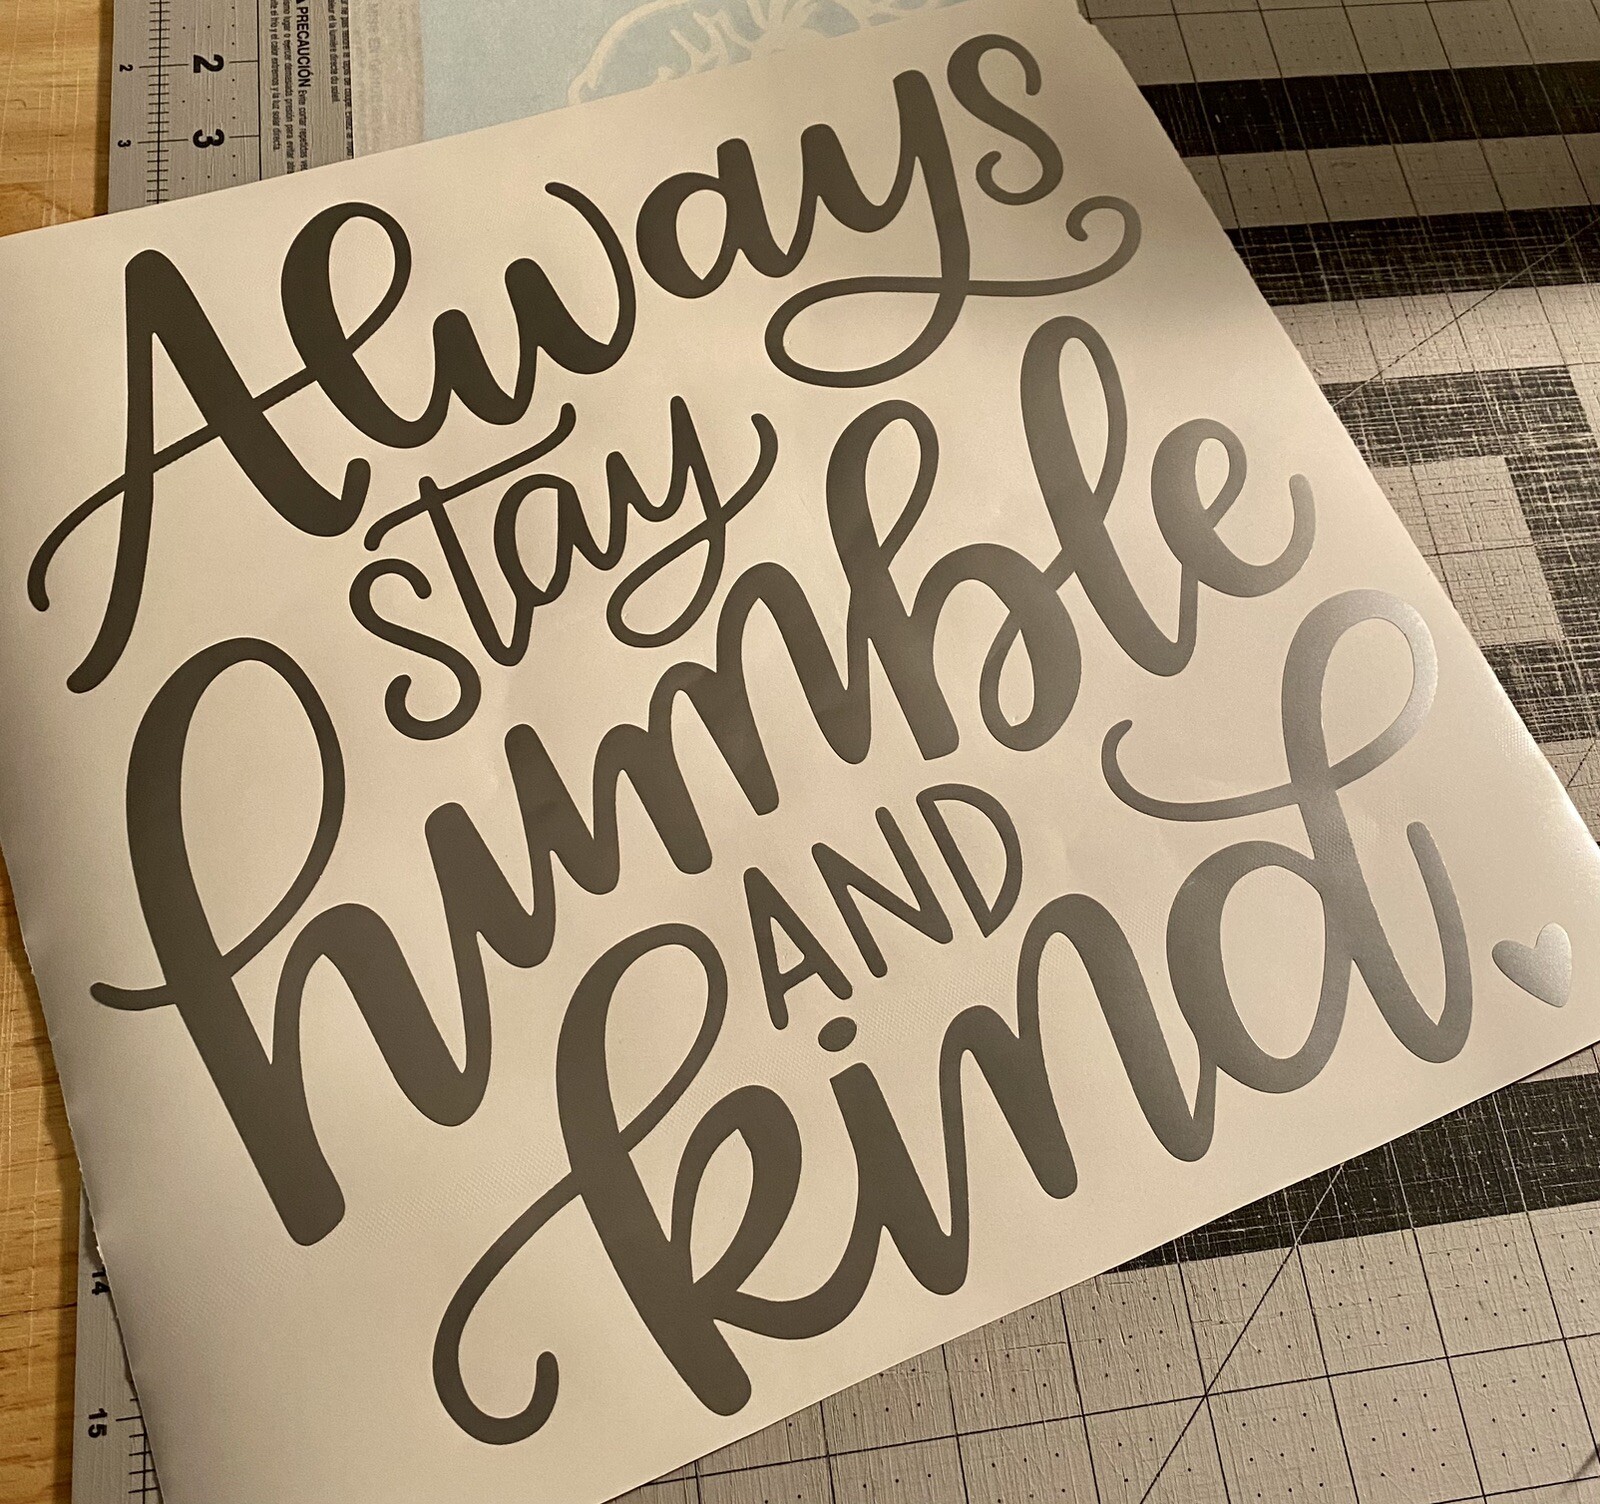 Always
stay
humble
AND
kind
2
2
3
3
PRECAUCIÓN
14
15